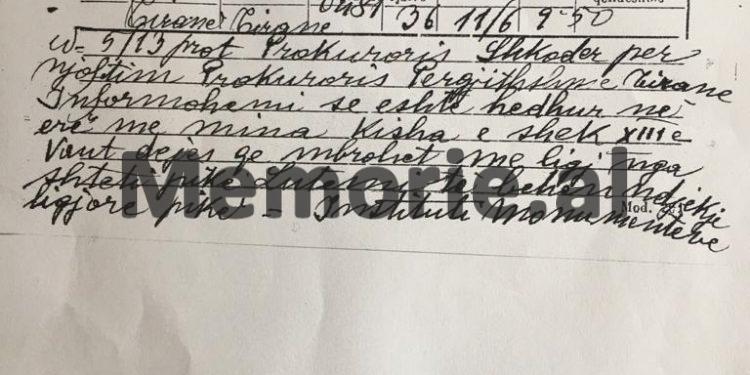 Tirane Tirane 0481 36 11/6 9-50
5/13 prot Prokuroris Shkoder per
njoftim Prokuroris Pergjithshme Tirane
Informohemi se eshte hedhur ne
ere me mina Kisha e shek XIII e
Vaut dejes qe mbrohet me ligj nga
shteti pike Lutemi te behen ndjekje
ligjore pike - Instituti Monumenteve
Mod.
Memorie.al